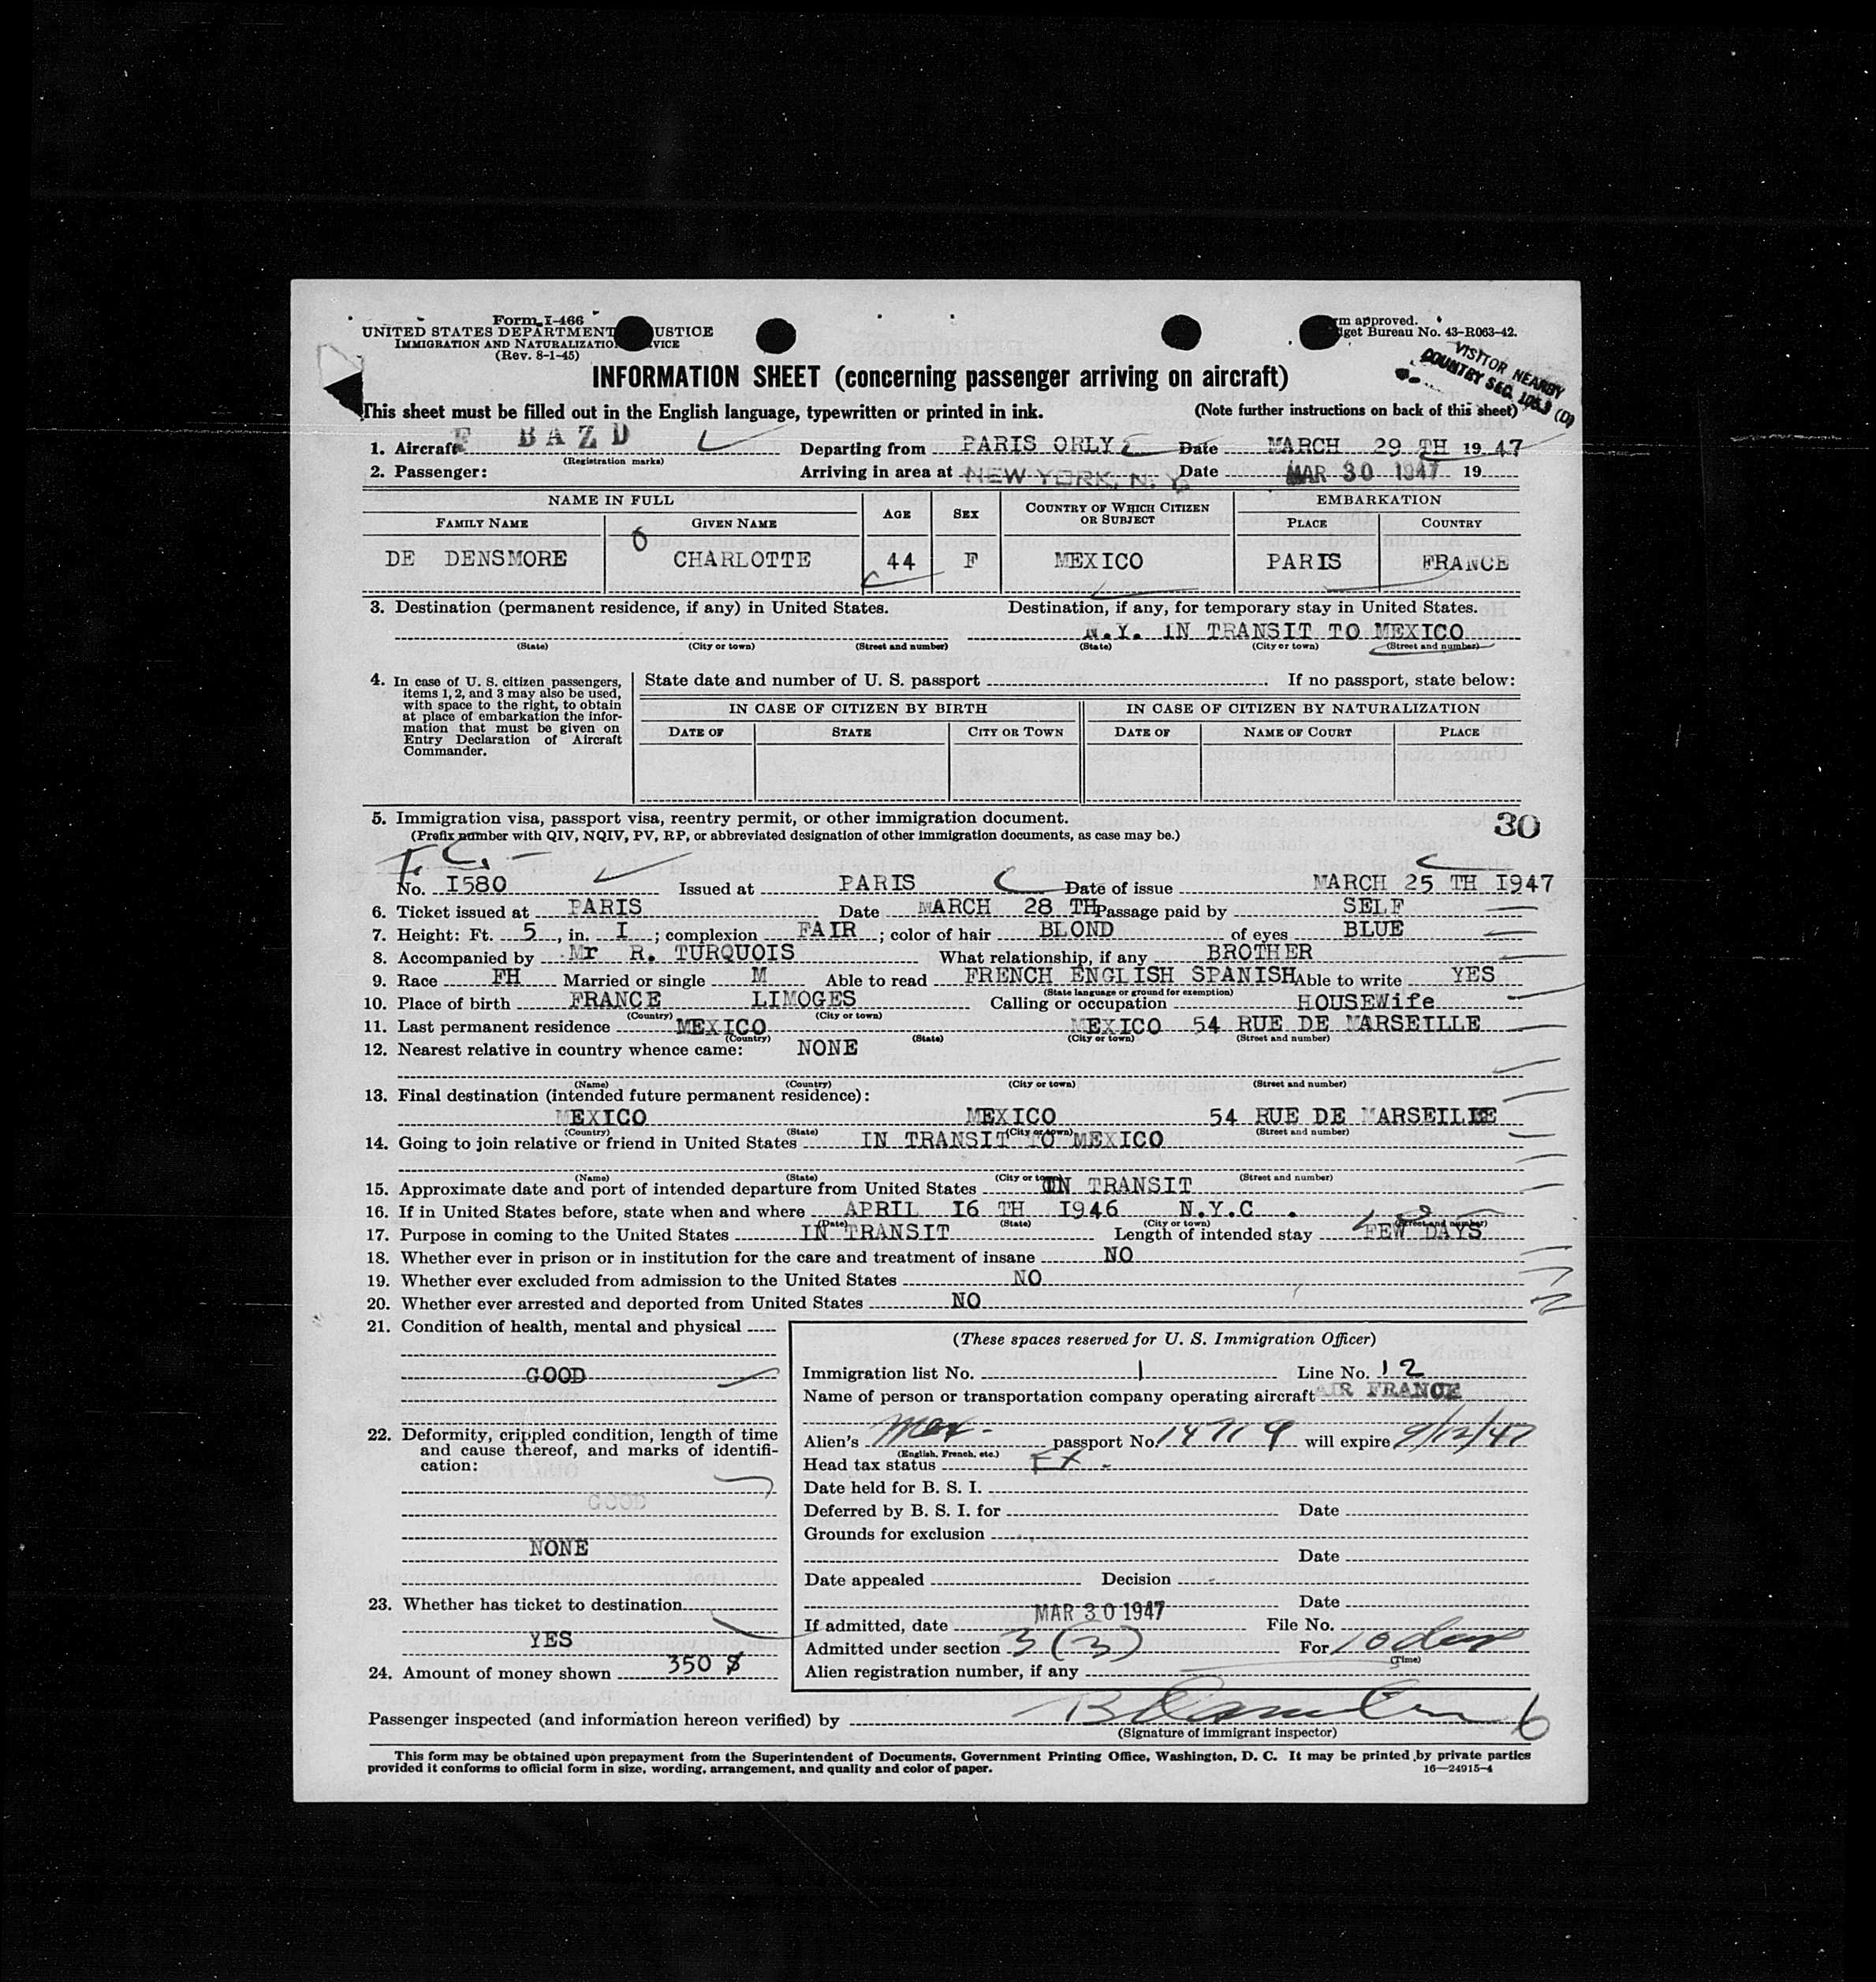 Form I-466
UNITED STATES DEPARTMENT USTICE
IMMIGRATION AND NATURALIZATIO VICE
(Rev. 8-1-45)
rm approved.
get Bureau No. 43-R063-42.
VISITOR NEARBY
COUNTRY SEC.
INFORMATION SHEET (concerning passenger arriving on aircraft)
This sheet must be filled out in the English language, typewritten or printed in ink. (Note further instructions on back of this sheet)
1. Aircraft F BAZD Departing from PARIS ORLY Date MARCH 29 TH 19 47
(Registration marks)
2. Passenger: Arriving in area at NEW YORK, N. Y. Date MAR 30 1947 19
NAME IN FULL AGE SEX COUNTRY OF WHICH CITIZEN OR SUBJECT EMBARKATION
FAMILY NAME GIVEN NAME PLACE COUNTRY
DE DENSMORE CHARLOTTE 44 F MEXICO PARIS FRANCE
3. Destination (permanent residence, if any) in United States. Destination, if any, for temporary stay in United States.
N.Y. IN TRANSIT TO MEXICO
(State) (City or town) (Street and number) (State) (City or town) (Street and number)
4. In case of U. S. citizen passengers, items 1, 2, and 3 may also be used, with space to the right, to obtain at place of embarkation the information that must be given on Entry Declaration of Aircraft Commander.
State date and number of U. S. passport . If no passport, state below:
IN CASE OF CITIZEN BY BIRTH IN CASE OF CITIZEN BY NATURALIZATION
DATE OF STATE CITY OR TOWN DATE OF NAME OF COURT PLACE
5. Immigration visa, passport visa, reentry permit, or other immigration document.
(Prefix number with QIV, NQIV, PV, RP, or abbreviated designation of other immigration documents, as case may be.)
30
No. I580 Issued at PARIS Date of issue MARCH 25 TH I947
6. Ticket issued at PARIS Date MARCH 28 TH Passage paid by SELF
7. Height: Ft. 5, in. I; complexion FAIR; color of hair BLOND of eyes BLUE
8. Accompanied by Mr R. TURQUOIS What relationship, if any BROTHER
9. Race FH Married or single M Able to read FRENCH ENGLISH SPANISH Able to write YES
(State language or ground for exemption)
10. Place of birth FRANCE LIMOGES Calling or occupation HOUSEWife
(Country) (City or town)
11. Last permanent residence MEXICO MEXICO 54 RUE DE MARSEILLE
(Country) (State) (City or town) (Street and number)
12. Nearest relative in country whence came: NONE
(Name) (Country) (City or town) (Street and number)
13. Final destination (intended future permanent residence):
MEXICO MEXICO 54 RUE DE MARSEILLE
(Country) (State) (City or town) (Street and number)
14. Going to join relative or friend in United States IN TRANSIT TO MEXICO
(Name) (State) (City or town) (Street and number)
15. Approximate date and port of intended departure from United States IN TRANSIT
16. If in United States before, state when and where APRIL I6 TH I946 N.Y.C .
(Date) (State) (City or town) (Street and number)
17. Purpose in coming to the United States IN TRANSIT Length of intended stay FEW DAYS
18. Whether ever in prison or in institution for the care and treatment of insane NO
19. Whether ever excluded from admission to the United States NO
20. Whether ever arrested and deported from United States NO
21. Condition of health, mental and physical
GOOD
22. Deformity, crippled condition, length of time and cause thereof, and marks of identification:
GOOD
NONE
23. Whether has ticket to destination
YES
24. Amount of money shown 350 $
(These spaces reserved for U. S. Immigration Officer)
Immigration list No. 1 Line No. 12
Name of person or transportation company operating aircraft AIR FRANCE
Alien's Mex. passport No. 14719 will expire 9/12/47
(English, French, etc.)
Head tax status EX.
Date held for B. S. I.
Deferred by B. S. I. for Date
Grounds for exclusion
Date
Date appealed Decision
Date
If admitted, date MAR 30 1947 File No.
Admitted under section 3 (3) For 10 days
(Time)
Alien registration number, if any
Passenger inspected (and information hereon verified) by
6
(Signature of immigrant inspector)
This form may be obtained upon prepayment from the Superintendent of Documents, Government Printing Office, Washington, D. C. It may be printed by private parties
provided it conforms to official form in size, wording, arrangement, and quality and color of paper. 16—24915-4